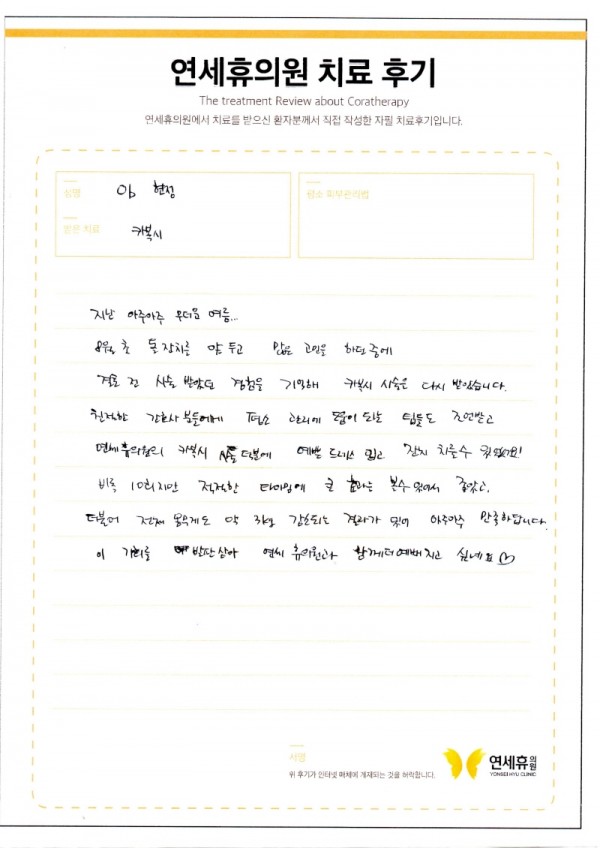 연세휴의원 치료 후기
The treatment Review about Coratherapy
연세휴의원에서 치료를 받으신 환자분께서 직접 작성한 자필 치료후기입니다.
성명 현정
받은 치료 카복시
평소 피부관리법
지난 아주아주 무더운 여름...
8월 초 돌잔치를 앞두고 많은 고민을 하던 중에
결혼 전 시술 받았던 경험을 기억해 카복시 시술은 다시 받았습니다.
친절한 간호사 분들에게 평소 관리에 도움이 되는 팁들도 조언받고
연세휴의원의 카복시 시술 덕분에 예쁜 드레스 입고 잔치 치를수 있었어요!
비록 10회지만 적절한 타이밍에 큰 효과는 볼수 있어서 좋았고,
더불어 전체 몸무게도 약 감소되는 결과가 있어 아주아주 만족합니다.
이 기회를 발판삼아 연세 휴의원과 함께 더 예뻐지고 싶네요 ♡
서명
위 후기가 인터넷 매체에 게재되는 것을 허락합니다.
연세휴의원
YONSEI HYU CLINIC